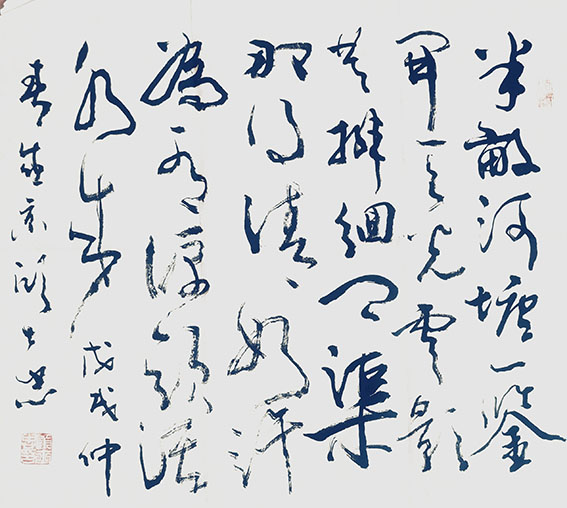 半畝河塘一鑒
開天光雲影
共徘徊問渠
那得清如許
為有源頭活
水來 戊戌仲
春